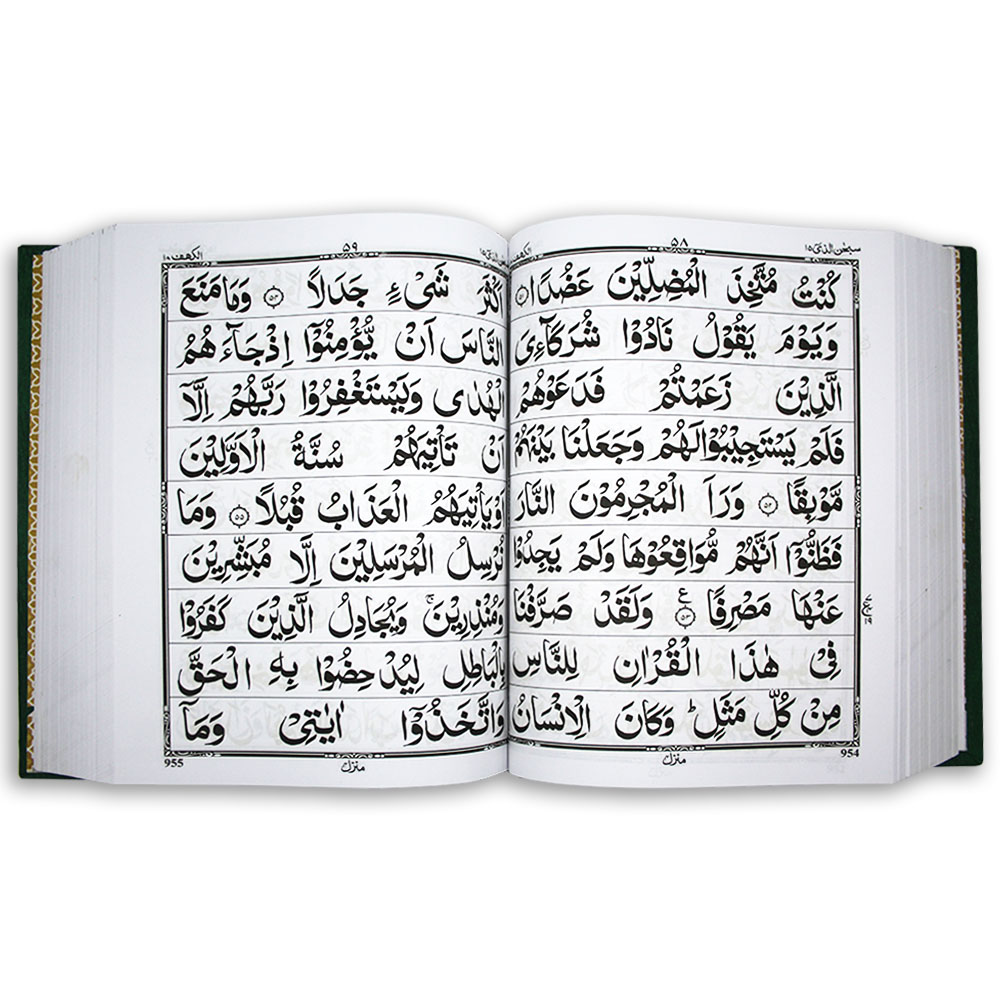 سبحٰن الذی ١٥
٥٨
الكهف
كُنْتُ مُتَّخِذَ الْمُضِلِّيْنَ عَضُدًا ۝٥١
وَيَوْمَ يَقُوْلُ نَادُوْا شُرَكَآءِیَ
الَّذِيْنَ زَعَمْتُمْ فَدَعَوْهُمْ
فَلَمْ يَسْتَجِيْبُوْا لَهُمْ وَجَعَلْنَا بَيْنَهُمْ
مَّوْبِقًا ۝٥٢ وَرَاَ الْمُجْرِمُوْنَ النَّارَ
فَظَنُّوْۤا اَنَّهُمْ مُّوَاقِعُوْهَا وَلَمْ يَجِدُوْا
عَنْهَا مَصْرِفًا ۝٥٣ ع وَلَقَدْ صَرَّفْنَا
فِیْ هٰذَا الْقُرْاٰنِ لِلنَّاسِ
مِنْ كُلِّ مَثَلٍ ؕ وَكَانَ الْاِنْسَانُ
954
منزل
٥٩
الكهف ١٨
اَكْثَرَ شَیْءٍ جَدَلًا ۝٥٤ وَمَا مَنَعَ
النَّاسَ اَنْ يُّؤْمِنُوْۤا اِذْ جَآءَهُمُ
الْهُدٰى وَيَسْتَغْفِرُوْا رَبَّهُمْ اِلَّاۤ
اَنْ تَاْتِيَهُمْ سُنَّةُ الْاَوَّلِيْنَ
اَوْ يَاْتِيَهُمُ الْعَذَابُ قُبُلًا ۝٥٥ وَمَا
نُرْسِلُ الْمُرْسَلِيْنَ اِلَّا مُبَشِّرِيْنَ
وَمُنْذِرِيْنَ ۚ وَيُجَادِلُ الَّذِيْنَ كَفَرُوْا
بِالْبَاطِلِ لِيُدْحِضُوْا بِهِ الْحَقَّ
وَاتَّخَذُوْۤا اٰيٰتِیْ وَمَاۤ
955
منزل